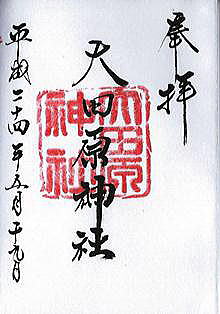 奉拝
大田原神社
大田原
神社
平成二十四年五月十九日